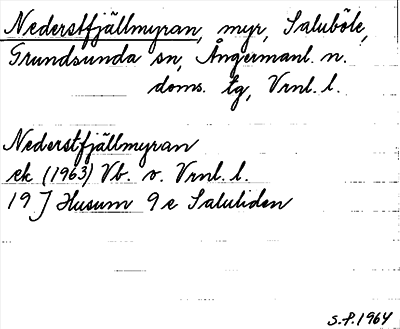 Nederstfjällmyran, myr, Saluböle,
Grundsunda sn, Ångermanl. n.
doms. tg, Vrnl. l.
Nederstfjällmyran
ek (1963) Vb. o. Vrnl. l.
19 J Husum 9 e Saluliden
S.P. 1964